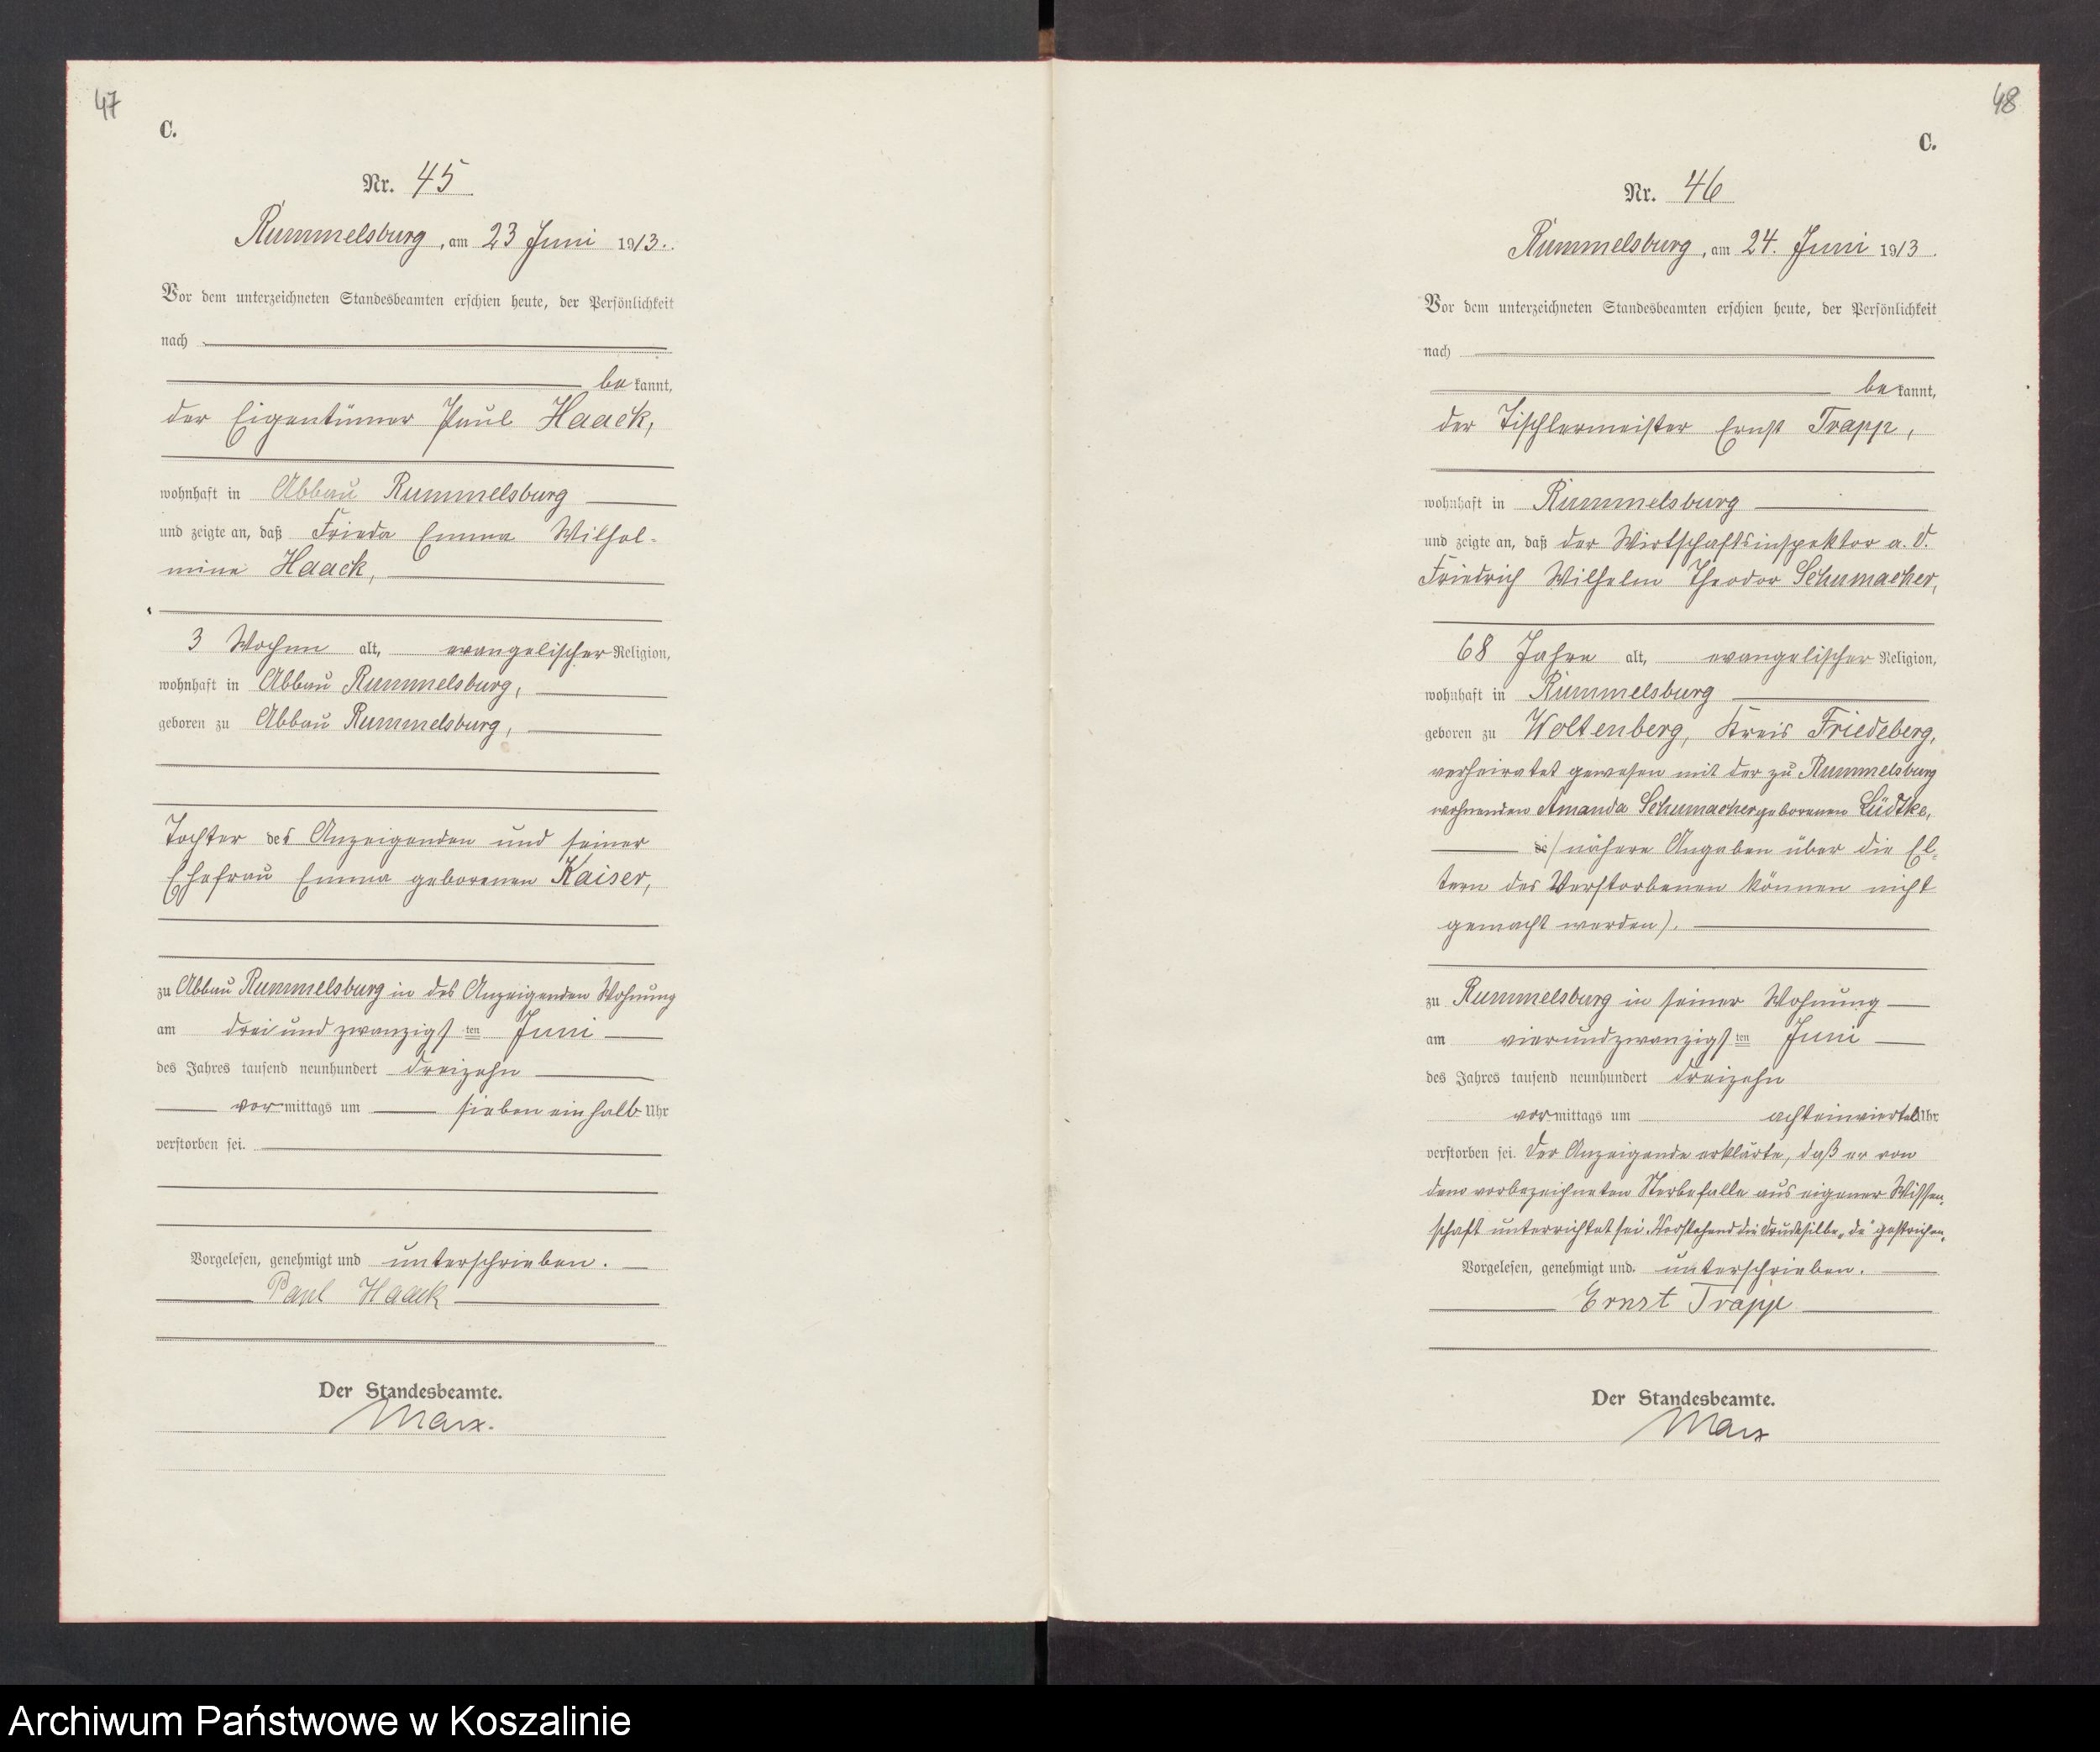 47
C.
Nr. 45
Rummelsburg, am 23 Juni 1913.
Vor dem unterzeichneten Standesbeamten erschien heute, der Persönlichkeit
nach
bekannt,
der Eigentümer Paul Haack,
wohnhaft in Abbau Rummelsburg
und zeigte an, daß Frieda Emma Wilhel-
mine Haack,
3 Wochen alt, evangelischer Religion,
wohnhaft in Abbau Rummelsburg,
geboren zu Abbau Rummelsburg,
Tochter des Anzeigenden und seiner
Ehefrau Emma geborenen Kaiser,
zu Abbau Rummelsburg in des Anzeigenden Wohnung
am dreiundzwanzigsten Juni
des Jahres tausend neunhundert dreizehn
vormittags um sieben ein halb Uhr
verstorben sei.
Vorgelesen, genehmigt und unterschrieben.
Paul Haack
Der Standesbeamte.
Marx.
48
C.
Nr. 46
Rummelsburg, am 24. Juni 1913.
Vor dem unterzeichneten Standesbeamten erschien heute, der Persönlichkeit
nach
bekannt,
der Tischlermeister Ernst Trapp,
wohnhaft in Rummelsburg
und zeigte an, daß der Wirtschaftsinspektor a. D.
Friedrich Wilhelm Theodor Schumacher,
68 Jahre alt, evangelischer Religion,
wohnhaft in Rummelsburg
geboren zu Woltenberg, Kreis Friedeberg,
verheiratet gewesen mit der zu Rummelsburg
wohnenden Amanda Schumacher geborenen Lüdtke,
(nähere Angaben über die El-
tern des Verstorbenen können nicht
gemacht werden).
zu Rummelsburg in seiner Wohnung
am vierundzwanzigsten Juni
des Jahres tausend neunhundert dreizehn
vormittags um achteinviertel Uhr
verstorben sei. Der Anzeigende erklärte, daß er von
dem vorbezeichneten Sterbefalle aus eigener Wissen-
schaft unterrichtet sei. Vorstehend die Drucksilbe „de“ gestrichen.
Vorgelesen, genehmigt und unterschrieben.
Ernst Trapp
Der Standesbeamte.
Marx
Archiwum Państwowe w Koszalinie